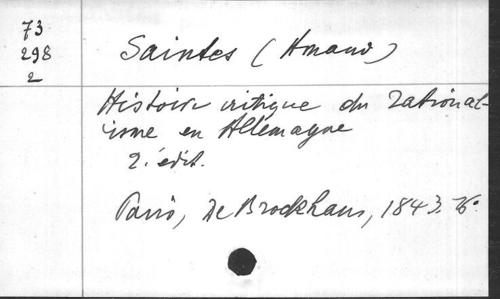 73
298
2
Saintes (Amand)
Histoire critique du rational-
isme en Allemagne
2. édit.
Paris, De Brockhaus, 1843. 8°.